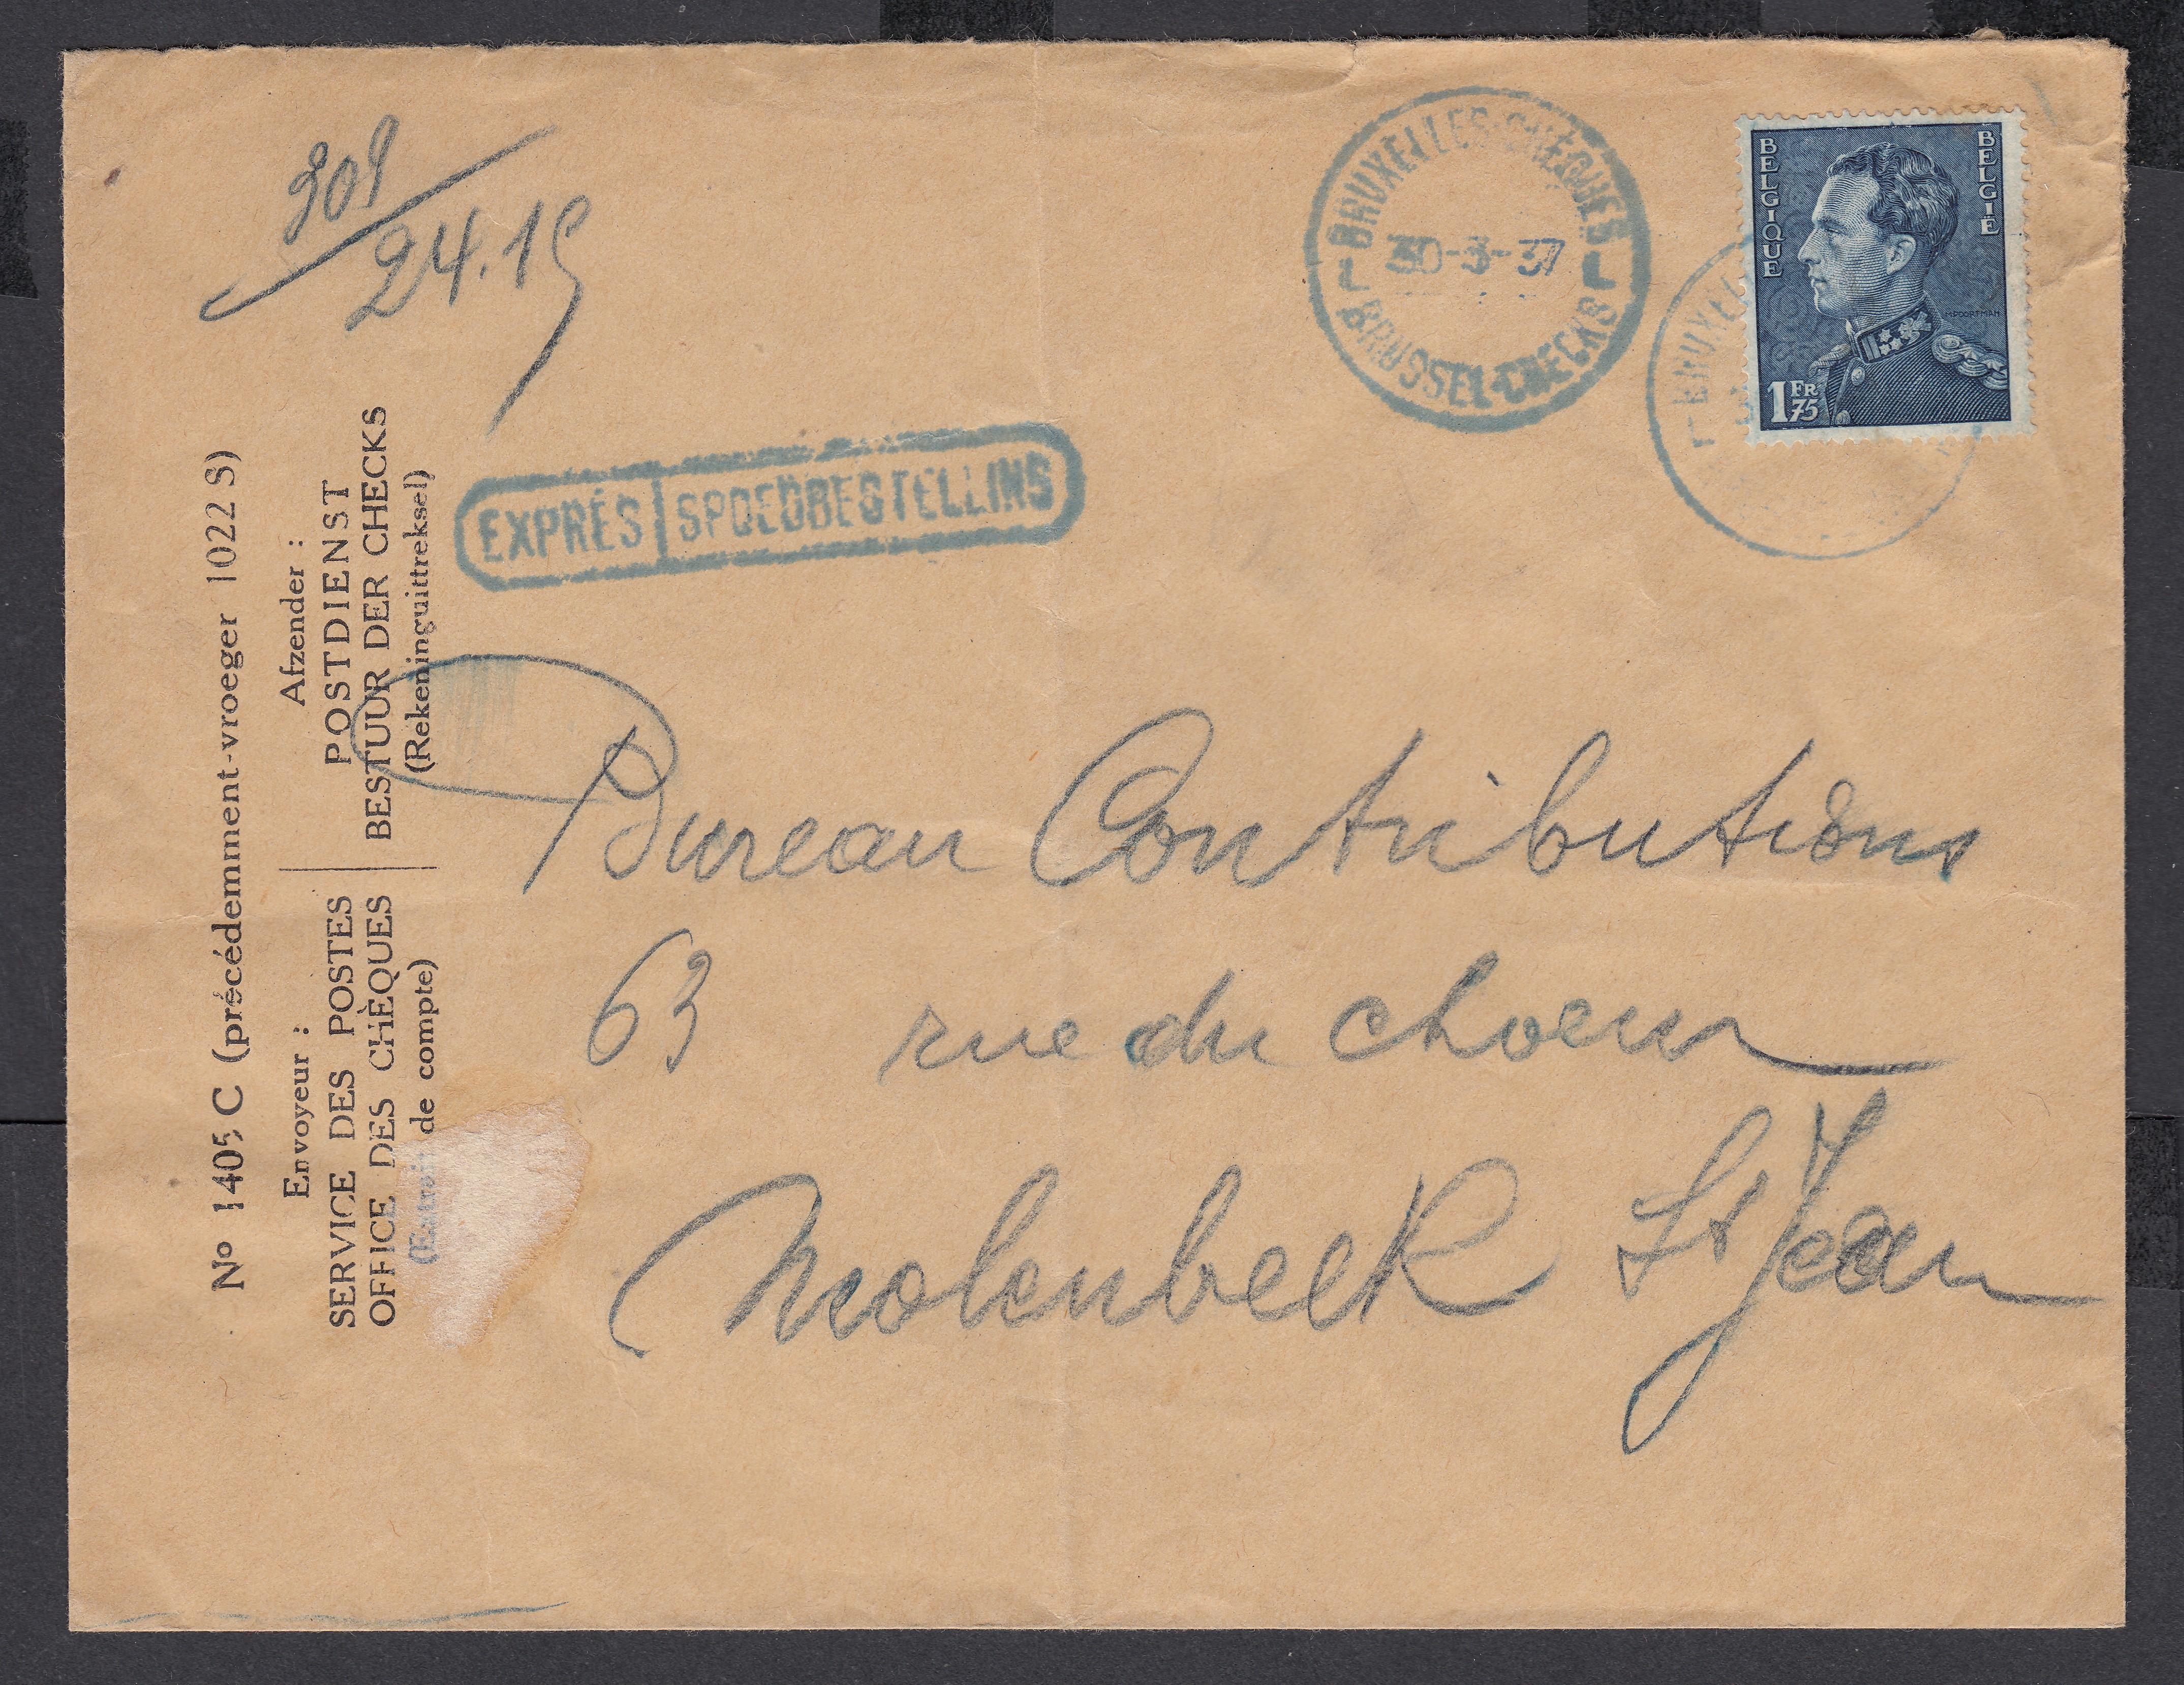 909
24.19
BRUXELLES-CHEQUES
30-3-37
BRUSSEL-CHECKS
BELGIQUE
BELGIE
M.POORTMAN
1FR 75
BRUXEL
EXPRÈS | SPOEDBESTELLING
No 1405 C (précédemment-vroeger 1022 S)
Envoyeur :
SERVICE DES POSTES
OFFICE DES CHÈQUES
(Extrait de compte)
Afzender :
POSTDIENST
BESTUUR DER CHECKS
(Rekeninguittreksel)
Bureau Contributions
63 rue du choeur
Molenbeek St Jean